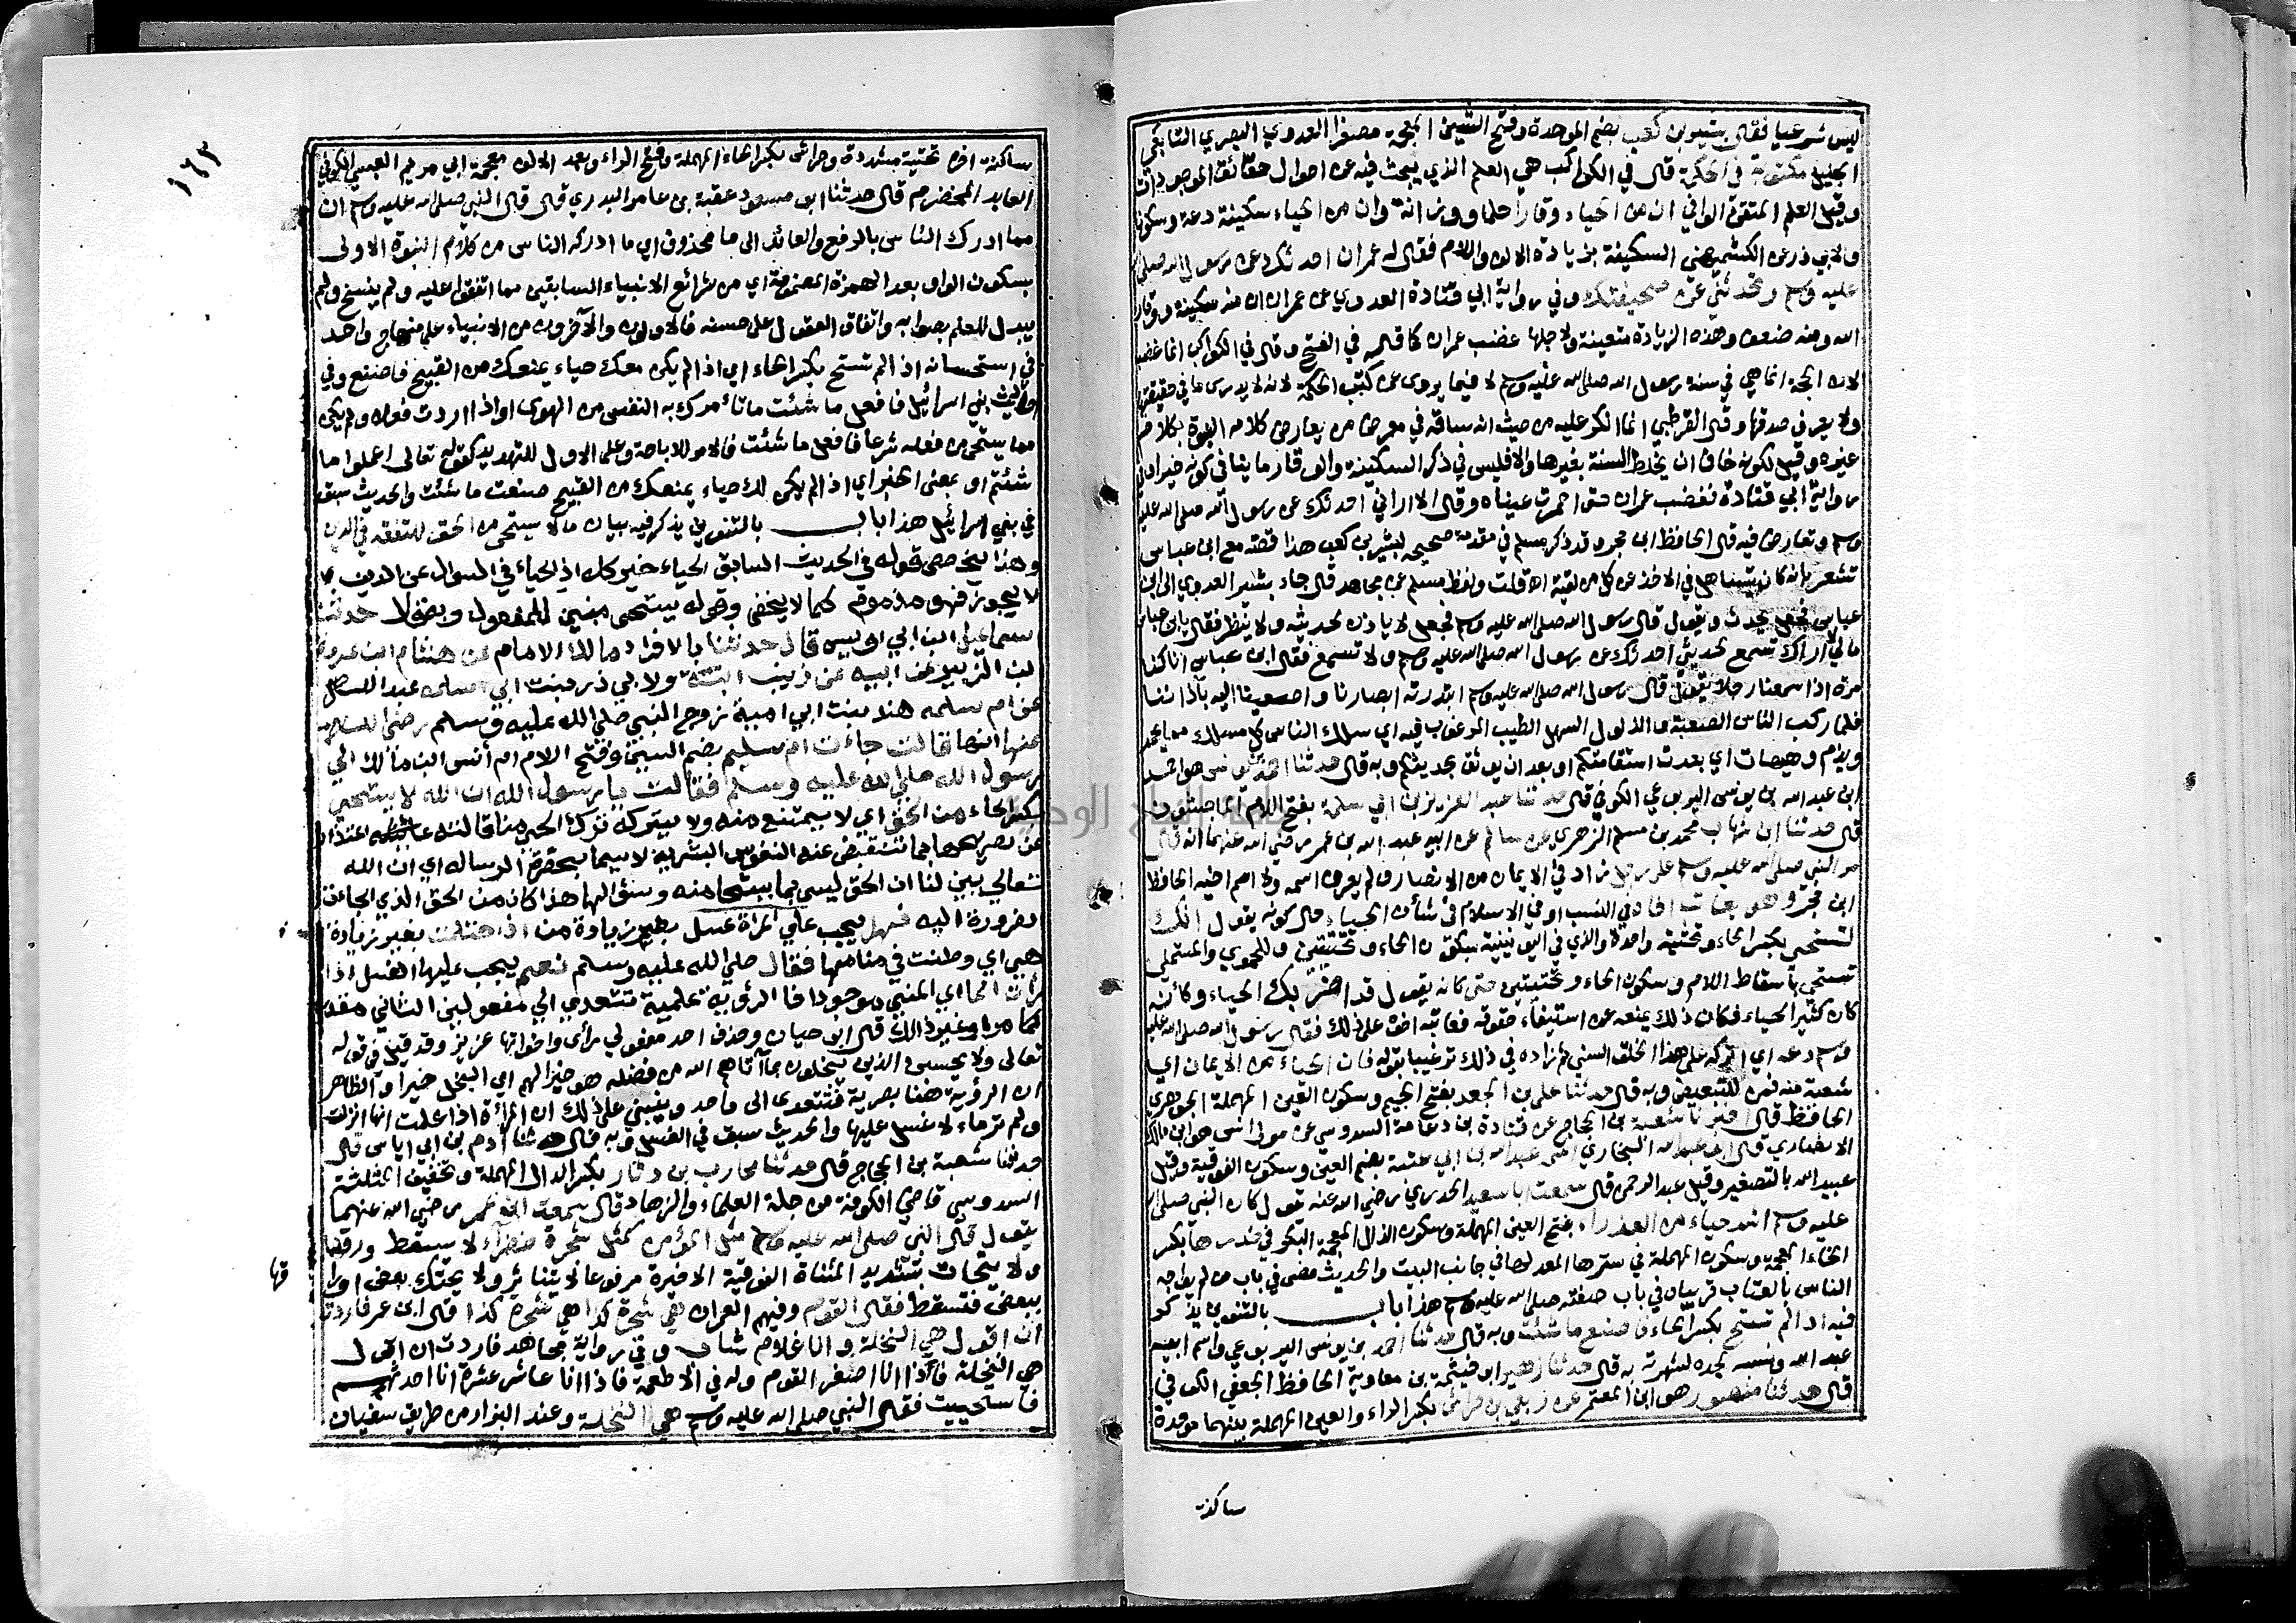 ليس شرعيا فقال بشير بن كعب بضم الموحدة وفتح الشين المعجمة مصغرا العدوي البصري التابعي
الجليل مكتوب في الحكمة قال في الكواكب هي العلم الذي يبحث فيه عن احوال حقائق الموجودات
وقيل العلم المتقن الوافي ان من الحياء وقارا حلما ورزانة وان من الحياء سكينة دعة وسكونا
ولابي ذر عن الكشميهني السكينة بزيادة الالف واللام فقال له عمران احدثك عن رسول الله صلى الله
عليه وسلم وتحدثني عن صحيفتك وفي رواية ابي قتادة العدوي عن عمران ان منه سكينة ووقارا
لله ومنه ضعف وهذه الزيادة متعينة ولاجلها غضب عمران كما قاله في الفتح وقال في الكواكب انما غضب
لان الحجة انما هي في سنة رسول الله صلى الله عليه وسلم لا فيما يروى عن كتب الحكمة لانه لا يدرى ما في حقيقتها
ولا يعرف صدقها وقال القرطبي انما انكر عليه من حيث انه ساقه في معرض من يعارض كلامه النبوة بكلام
غيره وقيل لكونه خاف ان يخلط السنة بغيرها والا فليس في ذكر السكينة والوقار ما ينافي كونه خيرا وفي
رواية ابي قتادة فغضب عمران حتى احمرت عيناه وقال الا اراني احدثك عن رسول الله صلى الله عليه
وسلم وتعارض فيه قال الحافظ ابن حجر وقد ذكر مسلم في مقدمة صحيحه لبشير بن كعب هذا قصة مع ابن عباس
تشعر بانه كان يتساهل في الاخذ عن كل من لقيه اه قلت ولفظ مسلم عن مجاهد قال جاء بشير العدوي الى ابن
عباس فجعل يحدث ويقول قال رسول الله صلى الله عليه وسلم فجعل لا ياذن لحديثه ولا ينظر فقال يا ابن عباس
مالي لا اراك تسمع لحديثي احدثك عن رسول الله صلى الله عليه وسلم ولا تسمع فقال ابن عباس انا كنا
مرة اذا سمعنا رجلا يقول قال رسول الله صلى الله عليه وسلم ابتدرته ابصارنا واصغينا اليه باذاننا
فلما ركب الناس الصعبة والذلول السهل الطيب المرغوب فيه اي سلك الناس كل مسلك مما يحمد
ويذم وهيهات اي بعدت استقامتكم او بعد ان يوثق بحديثكم وبه قال حدثنا احمد بن يونس هو احمد
ابن عبد الله بن يونس اليربوعي الكوفي قال حدثنا عبد العزيز بن ابي سلمة بفتح اللام الماجشون
قال حدثنا ابن شهاب محمد بن مسلم الزهري عن سالم عن ابيه عبد الله بن عمر رضي الله عنهما انه قال
مر النبي صلى الله عليه وسلم على رجل زاد في الايمان من الانصار ولم يعرف اسمه ولا اسم اخيه الحافظ
ابن حجر وهو يعاتب اخاه في النسب او في الاسلام في شأن الحياء حال كونه يقول انك
لتستحي بكسر الحاء وتحتية واحدة والذي في اليونينية بسكون الحاء وتحتيتين وللحموي والمستملي
تستحي باسقاط اللام وسكون الحاء وتحتيتين حتى كانه يقول قد اضر بك الحياء وكأنه
كان كثير الحياء فكان ذلك يمنعه عن استيفاء حقوقه فعاتبه اخوه على ذلك فقال رسول الله صلى الله عليه
وسلم دعه اي اتركه على هذا الخلق السني ثم زاده في ذلك ترغيبا بقوله فان الحياء من الايمان اي
شعبة منه فمن للتبعيض وبه قال حدثنا علي بن الجعد بفتح الجيم وسكون العين المهملة الجوهري
الحافظ قال اخبرنا شعبة بن الحجاج عن قتادة بن دعامة السدوسي عن مولى انس هو ابن مالك
الانصاري قال ابو عبد الله البخاري اسمه عبد الله بن ابي عتبة بضم العين وسكون الفوقية وقيل
عبيد الله بالتصغير وقيل عبد الرحمن قال سمعت ابا سعيد الخدري رضي الله عنه يقول كان النبي صلى الله
عليه وسلم اشد حياء من العذراء بفتح العين المهملة وسكون الذال المعجمة البكر في خدرها بكسر
الخاء المعجمة وسكون المهملة في سترها المعد لها في جانب البيت والحديث مضى في باب من لم يواجه
الناس بالعتاب قريبا وفي باب صفته صلى الله عليه وسلم هذا باب بالتنوين يذكر
فيه اذا لم تستح بكسر الحاء فاصنع ما شئت وبه قال حدثنا احمد بن يونس اليربوعي واسم ابيه
عبد الله ونسبه لجده لشهرته به قال حدثنا زهير ابو خيثمة بن معاوية الحافظ الجعفي الكوفي
قال حدثنا منصور هو ابن المعتمر عن ربعي بن حراش بكسر الراء والعين المهملة بينهما موحدة
ساكنة
١٦٣
ساكنة اخره تحتية مشددة وحراش بكسر الحاء المهملة وفتح الراء وبعد الالف معجمة ابي مريم العبسي الكوفي
العابد المخضرم قال حدثنا ابو مسعود عقبة بن عامر البدري قال قال النبي صلى الله عليه وسلم ان
مما ادرك الناس بالرفع والعائد الى ما محذوف اي ما ادركه الناس من كلام النبوة الاولى
بسكون الواو بعد الهمزة المضمومة اي من شرائع الانبياء السابقين مما اتفقوا عليه ولم ينسخ ولم
يبدل للعلم بصوابه واتفاق العقول على حسنه فالاولون والآخرون من الانبياء على منهاج واحد
في استحسانه اذا لم تستح بكسر الحاء اي اذا لم يكن معك حياء يمنعك من القبيح فاصنع وفي
حديث بني اسرائيل فافعل ما شئت ما تأمرك به النفس من الهوى او اذا اردت فعله ولم يكن
مما يستحى من فعله شرعا فافعل ما شئت فالامر للاباحة وعلى الاول للتهديد كقوله تعالى اعملوا ما
شئتم او بمعنى الخبر اي اذا لم يكن لك حياء يمنعك من القبيح صنعت ما شئت والحديث سبق
في بني اسرائيل هذا باب بالتنوين يذكر فيه بيان ما لا يستحى من الحق للتفقه في الدين
وهذا يخصص قوله في الحديث السابق الحياء خير كله اذ الحياء في السوال عن الدين لا
لا يجوز فهو مذموم كما لا يخفى وقوله يستحى مبني للمفعول وبه قال حدثنا
اسماعيل ابن ابي اويس قال حدثنا بالافراد مالك الامام عن هشام ابن عروة
ابن الزبير عن ابيه عن زينب ابنة ولابي ذر بنت ابي سلمة عبد الله
عن ام سلمه هند بنت ابي امية زوج النبي صلى الله عليه وسلم رضي الله
عنها انها قالت جاءت ام سليم بضم السين وفتح اللام ام أنس ابن مالك الى
رسول الله صلى الله عليه وسلم فقالت يا رسول الله ان الله لا يستحيي
بكسر الحاء من الحق اي لا يمتنع منه ولا يتركه ترك الحيي منا قالته اعتذارا
عن تصريحها بما تنقبض عنه النفوس البشرية لاسيما بحضرة الرساله اي ان الله
تعالى بين لنا ان الحق ليس بما يستحيا منه وسؤالها هذا كان من الحق الذي الجاءت
الضرورة اليه فهل يجب على المرأة غسل بغير زيادة من اذا احتلمت بغير زيادة
هي اي وطئت في منامها فقال صلى الله عليه وسلم نعم يجب عليها الغسل اذا
رأت الماء اي المني موجودا فالرؤية علمية تتعدى الى مفعولين الثاني مقدر
كما مر او غير ذلك قال ابو حيان وحذف احد مفعولي رأى واخواتها عزيز وقد قيل في قوله
تعالى ولا يحسبن الذين يبخلون بما آتاهم الله من فضله هو خيرا لهم اي البخل خيرا والظاهر
ان الرؤية هنا بصرية فتتعدى الى واحد وينبني على ذلك ان المرأة اذا علمت انها انزلت
ولم تر ماء لا غسل عليها والحديث سبق في الغسل وبه قال حدثنا آدم بن ابي اياس قال
حدثنا شعبة بن الحجاج قال حدثنا محارب بن دثار بكسر الدال المهملة وتخفيف المثلثة
السدوسي قاضي الكوفة من جلة العلماء والزهاد قال سمعت ابن عمر رضي الله عنهما
يقول قال النبي صلى الله عليه وسلم مثل المؤمن كمثل شجرة خضراء لا يسقط ورقها
ولا يتحات بتشديد المثناة الفوقية الاخيرة مرفوعا لا يتناثر ولا يحتك بعض اورا
قها
ببعض فتسقط فقال القوم وفيهم العمران هي شجرة كذا هي شجرة كذا قال ابن عمر فاردت
ان اقول هي النخلة وانا غلام شاب وفي رواية مجاهد فاردت ان اقول
هي النخلة فاذا انا اصغر القوم وله في الاطعمة فاذا انا عاشر عشرة انا احدثهم
فاستحييت فقال النبي صلى الله عليه وسلم هي النخلة وعند البزار من طريق سفيان